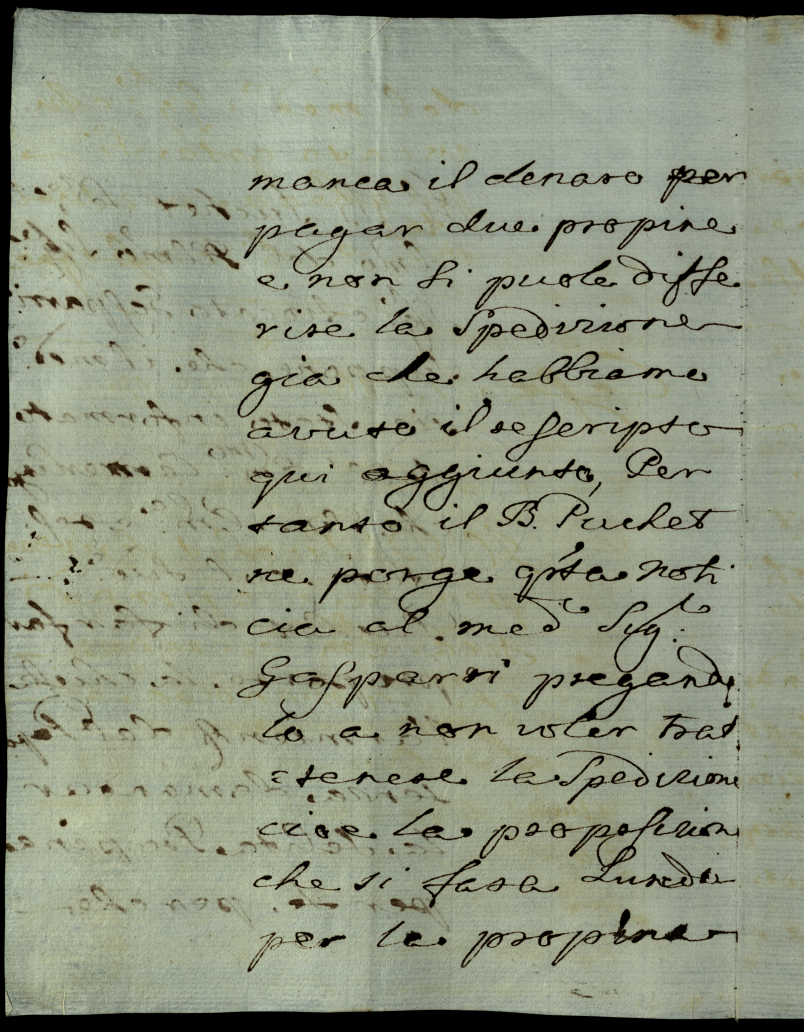 manca il denaro per
pagar due propine
e non si puole diffe
rire la Spedizione
già che habbiamo
avuto il rescripto
qui aggiunto, Per
tanto il B. Puchet
ne porge q'sta noti
cia al med.º Sig.r
Gasparri pregando
lo a non voler trat
tenere la Spedizione
cioe la proposizion
che si farà Lunedi
per le propine